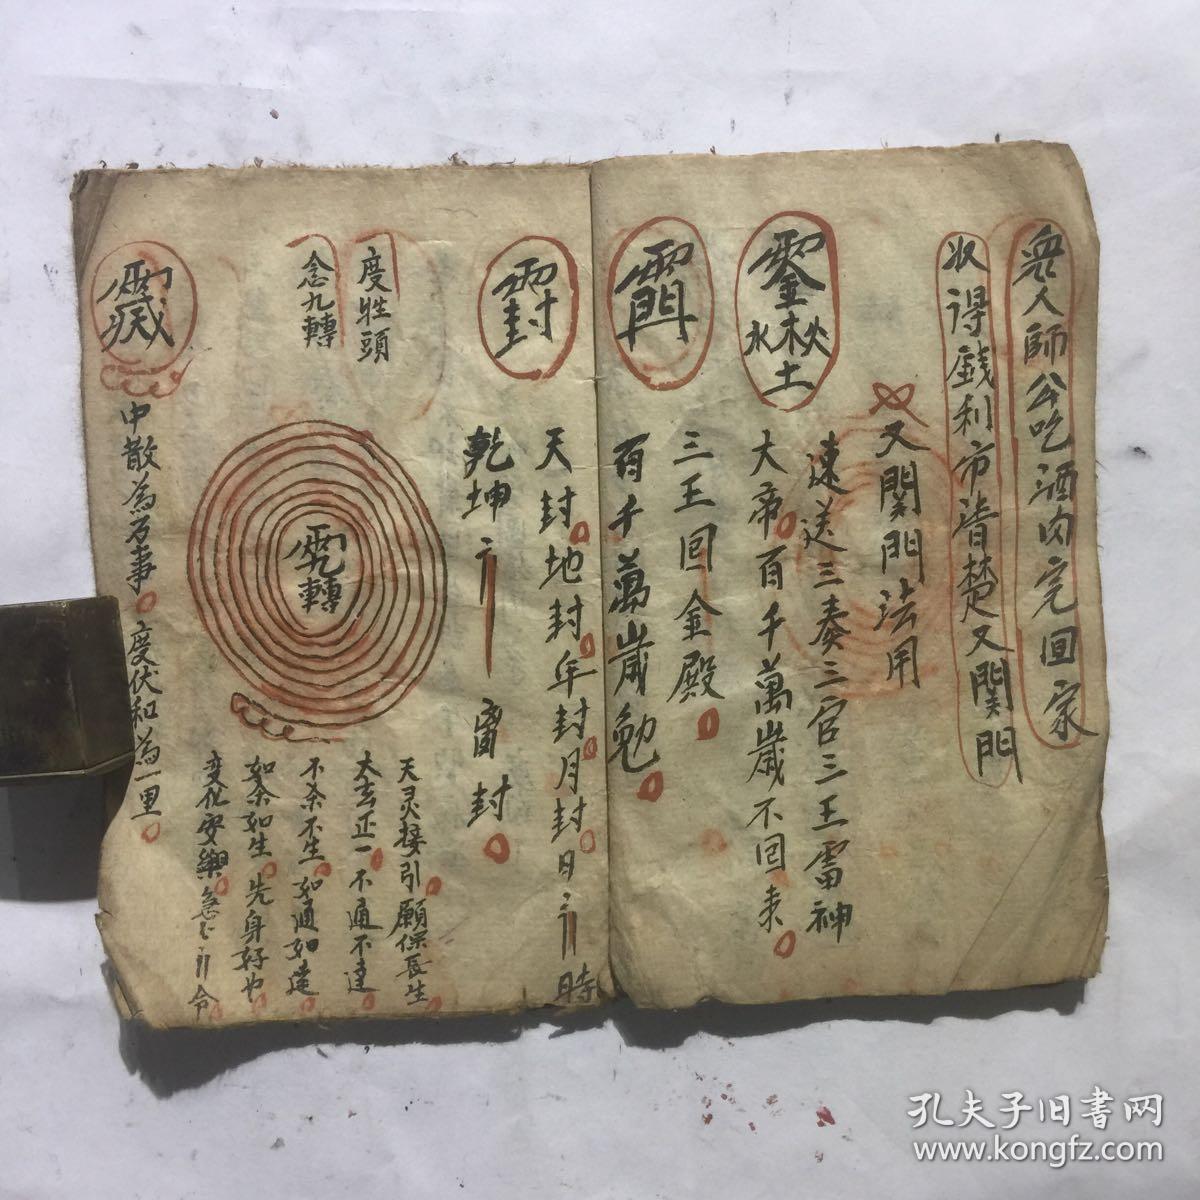 衆人師公吃酒肉完囬家
收得錢利市清楚又関門
又関門法用
速送三奏三官三王雷神
大帝百千萬歲不回来
三王回金殿
百千萬歲勉
封
天封地封年封月封日時
乾坤封
度牲頭
念九轉
轉
天灵接引願保長生
太玄正一不通不達
不余不生如通如達
如余如生先身好也
变化安樂急令
中散為万事度伏和為一里
孔夫子旧書网
www.kongfz.com